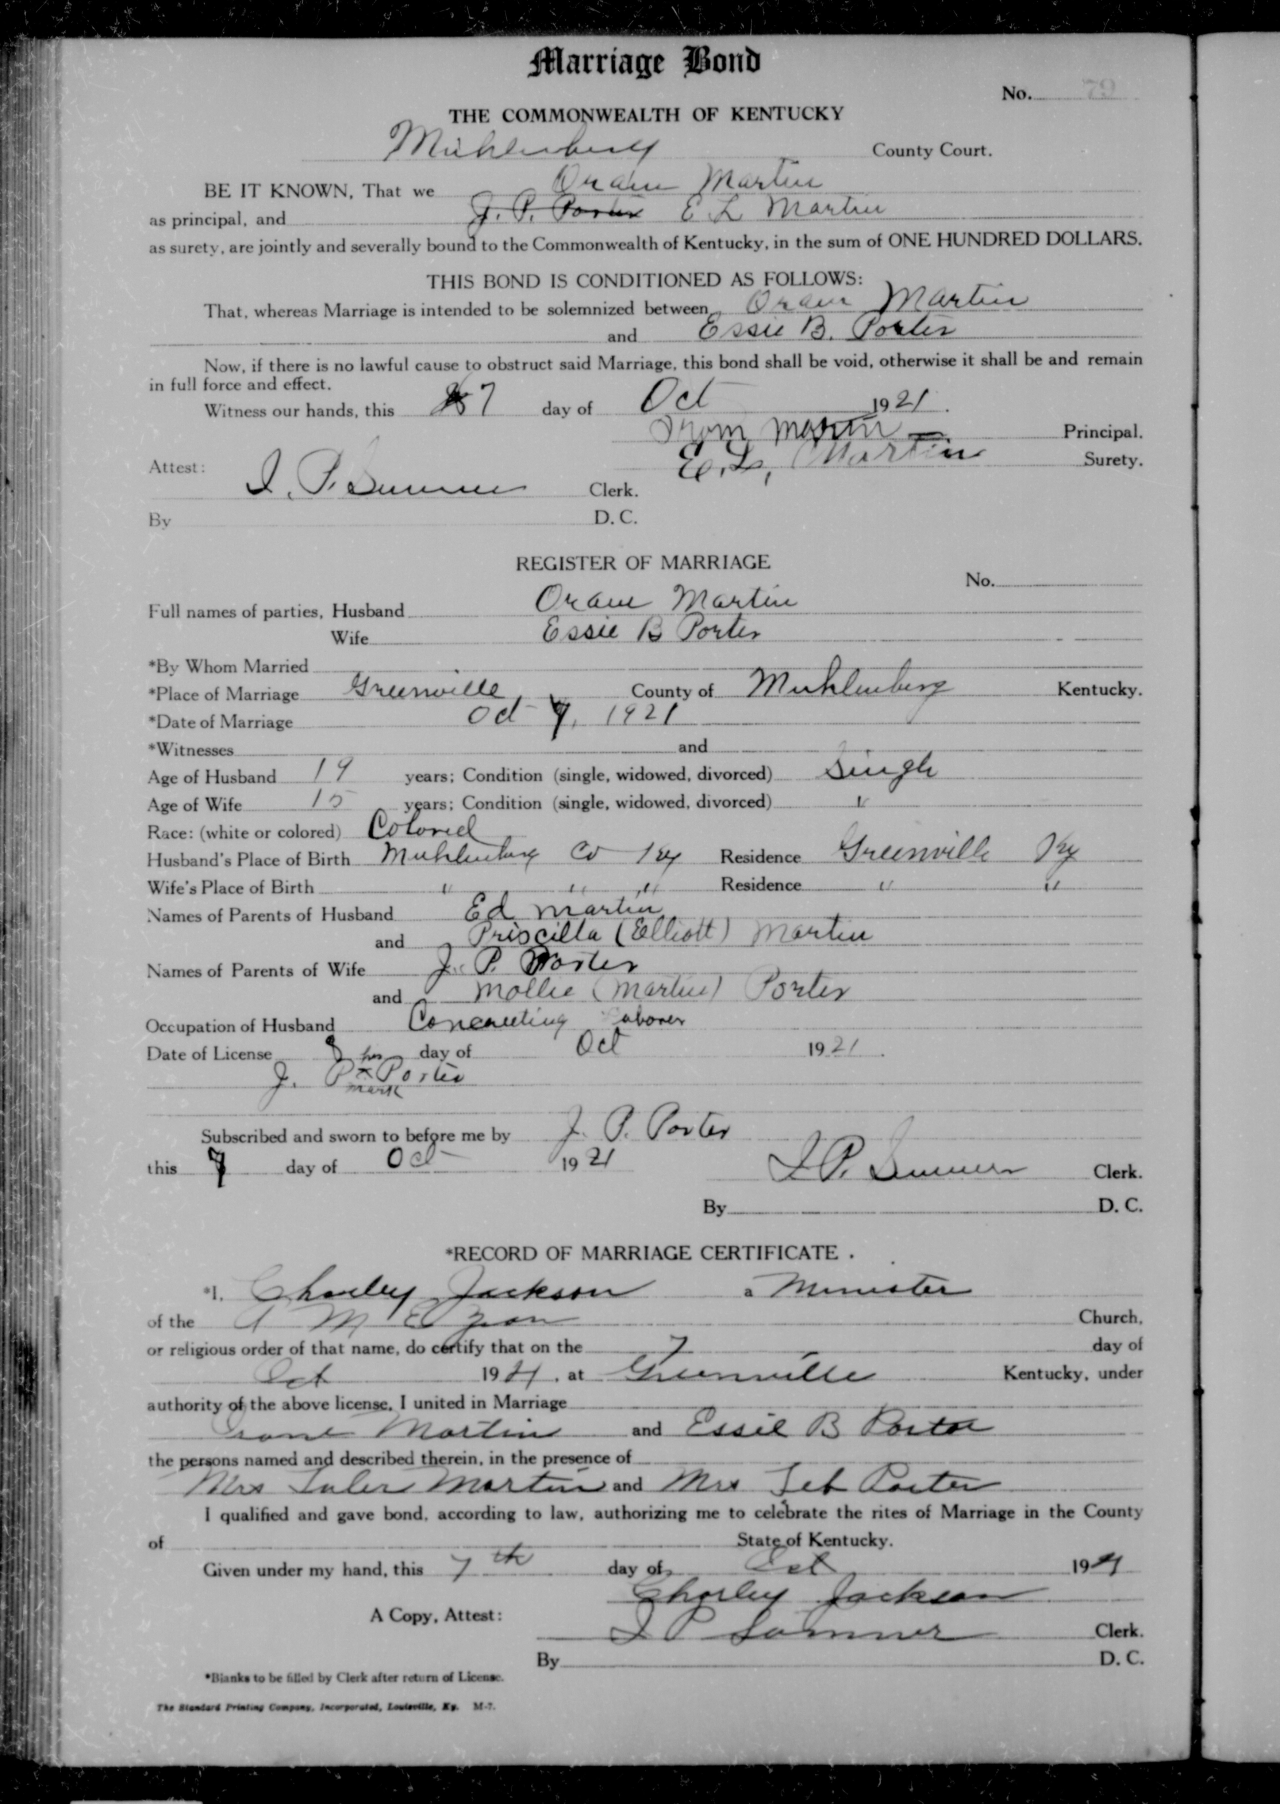 Marriage Bond
No. 79
THE COMMONWEALTH OF KENTUCKY
Muhlenberg County Court.
BE IT KNOWN, That we Oram Martin
as principal, and J. P. Porter E L Martin
as surety, are jointly and severally bound to the Commonwealth of Kentucky, in the sum of ONE HUNDRED DOLLARS.
THIS BOND IS CONDITIONED AS FOLLOWS:
That, whereas Marriage is intended to be solemnized between Oram Martin
and Essie B. Porter
Now, if there is no lawful cause to obstruct said Marriage, this bond shall be void, otherwise it shall be and remain
in full force and effect.
Witness our hands, this 7 day of Oct 1921.
Orom Martin Principal.
E. L. Martin Surety.
Attest: J. P. Summer Clerk.
By D. C.
REGISTER OF MARRIAGE
No.
Full names of parties, Husband Oram Martin
Wife Essie B Porter
*By Whom Married
*Place of Marriage Greenville County of Muhlenberg Kentucky.
*Date of Marriage Oct 7, 1921
*Witnesses and
Age of Husband 19 years; Condition (single, widowed, divorced) Single
Age of Wife 15 years; Condition (single, widowed, divorced) "
Race: (white or colored) Colored
Husband's Place of Birth Muhlenberg Co Ky Residence Greenville Ky
Wife's Place of Birth " " " Residence " "
Names of Parents of Husband Ed Martin
and Priscilla (Elliott) Martin
Names of Parents of Wife J. P. Porter
and Mollie (Martin) Porter
Occupation of Husband Concreeting Laborer
Date of License 8 day of Oct 1921.
his
J. P x Porter
mark
Subscribed and sworn to before me by J. P. Porter
this 7 day of Oct 1921
J. P. Summer Clerk.
By D. C.
*RECORD OF MARRIAGE CERTIFICATE.
*I, Charley Jackson a Minister
of the A M E Zion Church,
or religious order of that name, do certify that on the 7 day of
Oct 1921, at Greenville Kentucky, under
authority of the above license, I united in Marriage
Martin and Essie B Porter
the persons named and described therein, in the presence of
Mrs Martin and Mrs Porter
I qualified and gave bond, according to law, authorizing me to celebrate the rites of Marriage in the County
of State of Kentucky.
Given under my hand, this 7th day of Oct 1921
Charley Jackson
A Copy, Attest: J P Summer Clerk.
By D. C.
*Blanks to be filled by Clerk after return of License.
The Standard Printing Company, Incorporated, Louisville, Ky. M-7.